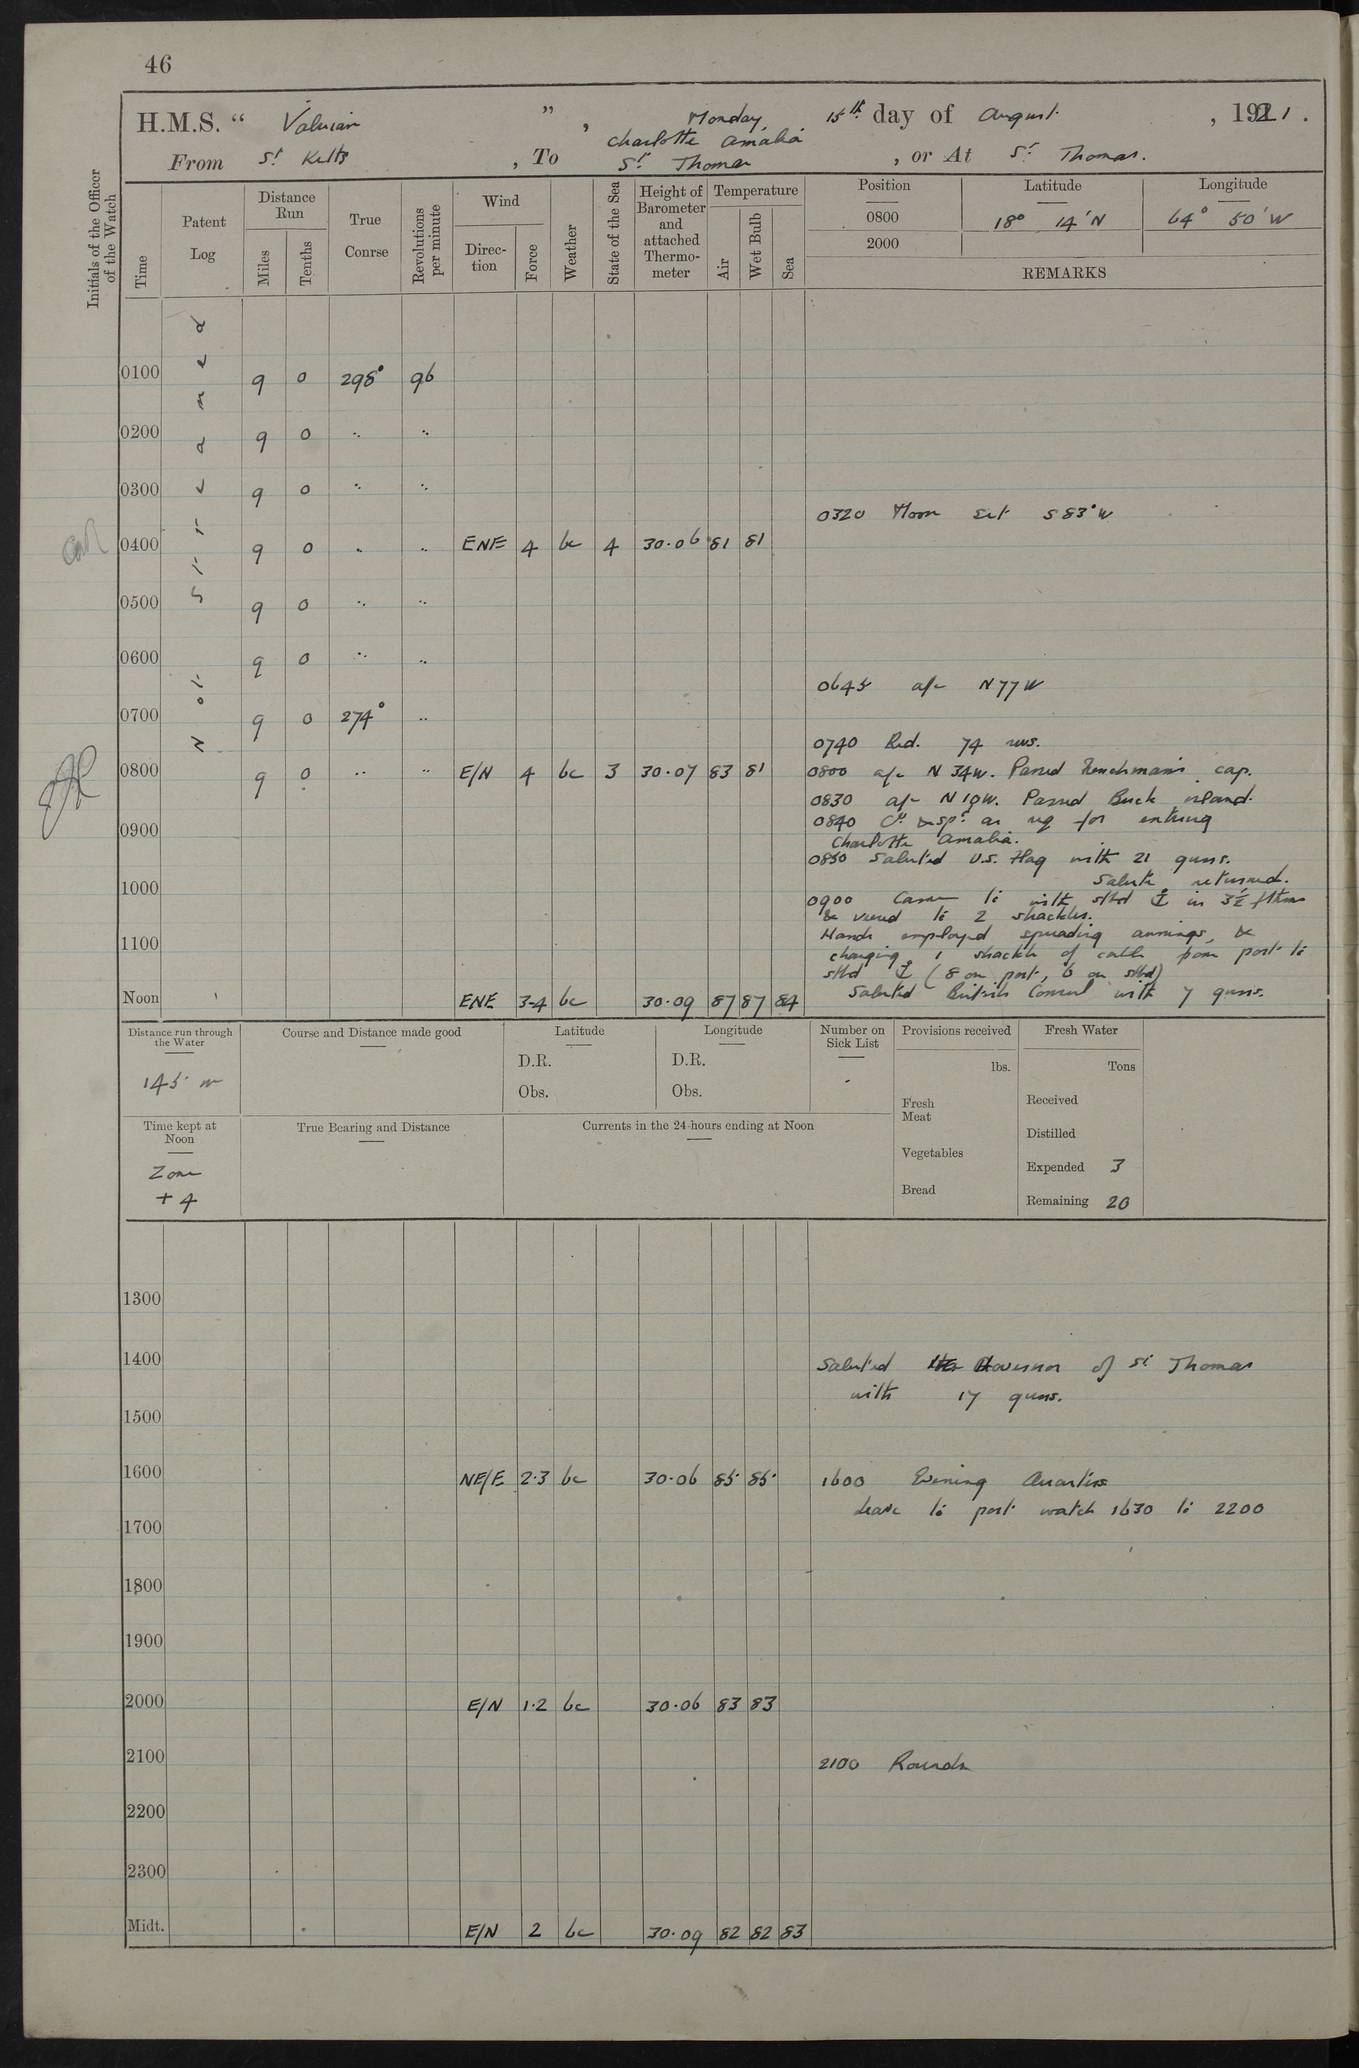 46
H.M.S. “ Valerian ” , Monday 15th day of August , 1921 .
From St Kitts , To Charlotte Amalia St Thomas , or At St Thomas.
Initials of the Officer of the Watch
Time
Patent Log
Distance Run
Miles
Tenths
True Course
Revolutions per minute
Wind
Direction
Force
Weather
State of the Sea
Height of Barometer and attached Thermometer
Temperature
Air
Wet Bulb
Sea
Position Latitude Longitude
0800 18° 14' N 64° 50' W
2000
REMARKS
Not Streamed
0100 9 0 298° 96
0200 9 0 " "
0300 9 0 " "
0320 Moon Set S 83° W
0400 9 0 " " ENE 4 bc 4 30.06 81 81
0500 9 0 " "
0600 9 0 " "
0645 a/c N 77 W
0700 9 0 274° "
0740 Red. 74 revs.
0800 9 0 " " E/N 4 bc 3 30.07 83 81
0800 a/c N 34 W. Passed Frenchman's cap.
0830 a/c N 19 W. Passed Buck island.
0840 Co & spd as req for entering
Charlotte Amalia.
0900
0850 Saluted U.S. Flag with 21 guns.
Salute returned.
1000
0900 Came to with stbd ⚓ in 3½ fthms
& veered to 2 shackles.
Hands employed spreading awnings, &
1100
changing 1 shackle of cable from port to
stbd ⚓ (8 on port, 6 on stbd)
Saluted British Consul with 7 guns.
Noon ENE 3-4 bc 30.09 87 87 84
Distance run through the Water
145 m
Course and Distance made good
Latitude
D.R.
Obs.
Longitude
D.R.
Obs.
Number on Sick List
-
Provisions received
lbs.
Fresh Meat
Vegetables
Bread
Fresh Water
Tons
Received
Distilled
Expended 3
Remaining 20
Time kept at Noon
Zone
+ 4
True Bearing and Distance
Currents in the 24 hours ending at Noon
1300
1400
Saluted the Governor of St Thomas
with 17 guns.
1500
1600 NE/E 2.3 bc 30.06 85 85
1600 Evening Quarters
Leave to port watch 1630 to 2200
1700
1800
1900
2000 E/N 1.2 bc 30.06 83 83
2100
2100 Rounds
2200
2300
Midt. E/N 2 bc 30.09 82 82 83